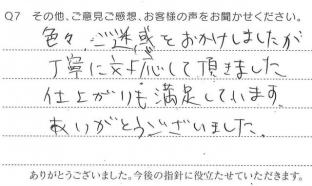 Q7 その他、ご意見ご感想、お客様の声をお聞かせください。
色々、ご迷惑をおかけしましたが
丁寧に対応して頂きました
仕上がりも満足しています。
ありがとうございました。
ありがとうございました。今後の指針に役立たせていただきます。